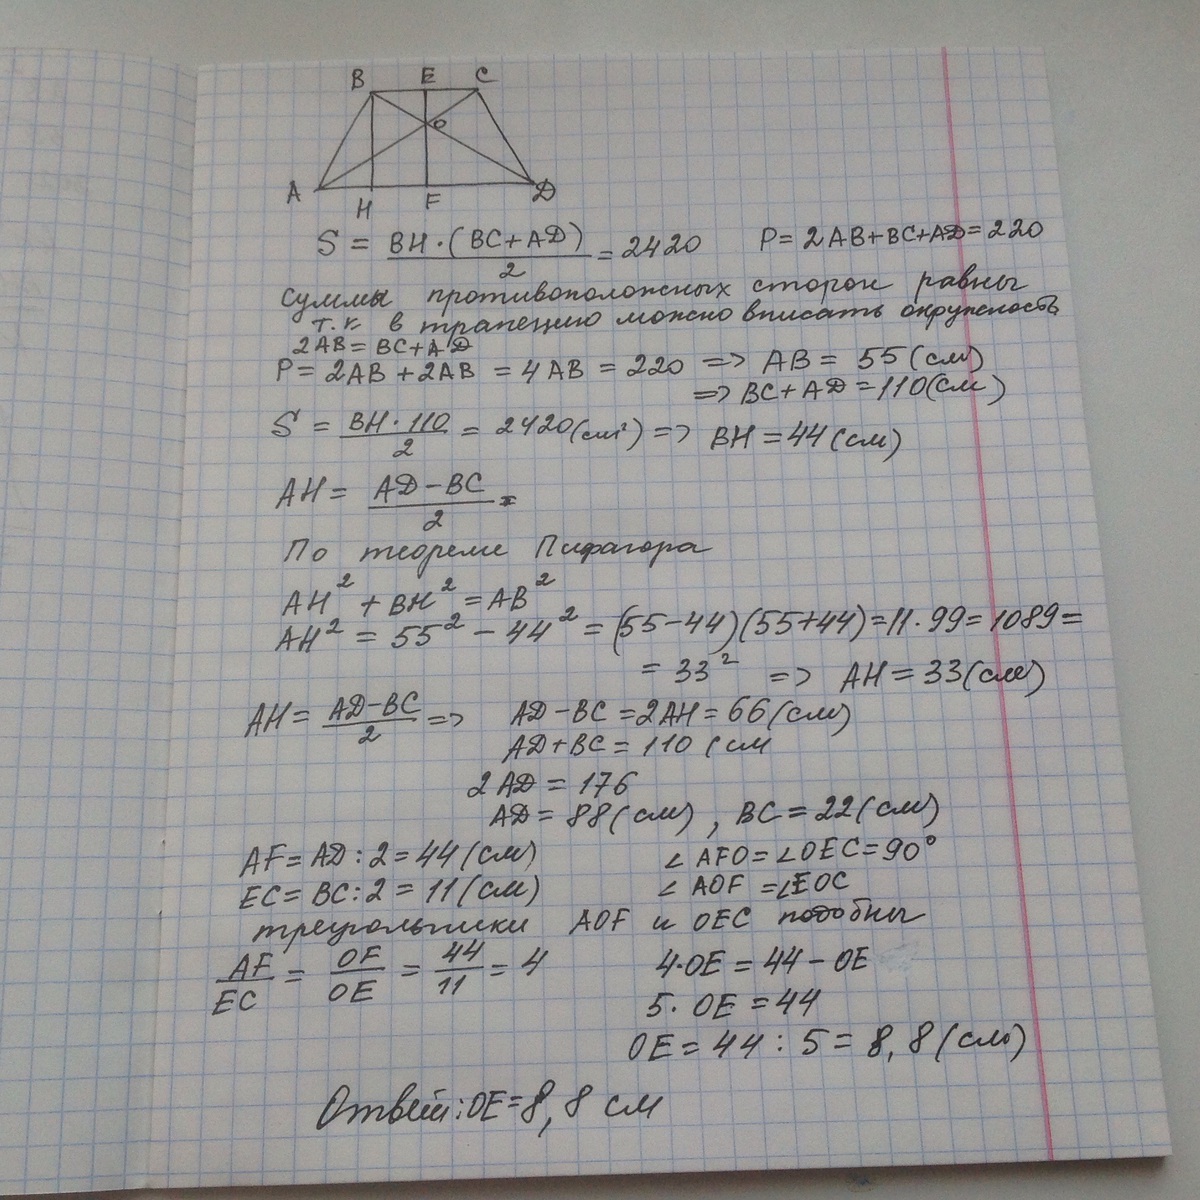 B E C
O
A H F D
S = BH·(BC+AD)/2 = 2420 P = 2AB+BC+AD = 220
Суммы противоположных сторон равны
т.к. в трапецию можно вписать окружность
2AB = BC+AD
P = 2AB + 2AB = 4AB = 220 => AB = 55 (см)
=> BC + AD = 110 (см)
S = BH·110/2 = 2420 (см²) => BH = 44 (см)
AH = AD-BC/2 =
По теореме Пифагора
AH² + BH² = AB²
AH² = 55² - 44² = (55-44)(55+44) = 11·99 = 1089 =
= 33² => AH = 33 (см)
AH = AD-BC/2 => AD - BC = 2AH = 66 (см)
AD + BC = 110 (см
2AD = 176
AD = 88 (см), BC = 22 (см)
AF = AD : 2 = 44 (см) ∠AFO = ∠OEC = 90°
EC = BC : 2 = 11 (см) ∠AOF = ∠EOC
треугольники AOF и OEC подобны
AF/EC = OF/OE = 44/11 = 4 4·OE = 44 - OE
5·OE = 44
OE = 44 : 5 = 8,8 (см)
Ответ: OE = 8,8 см